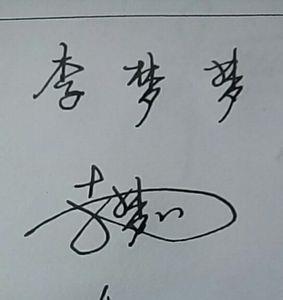 李梦梦
李梦